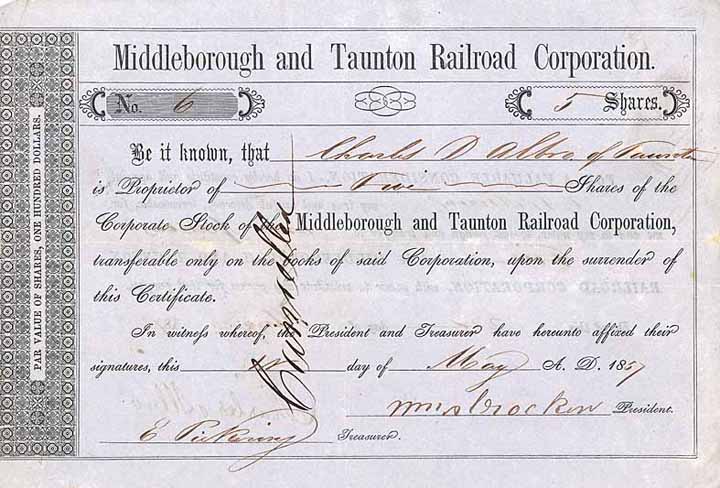 Middleborough and Taunton Railroad Corporation.
No. 6
5 Shares.
PAR VALUE OF SHARES, ONE HUNDRED DOLLARS.
Be it known, that Charles D Albro of Taunton
is Proprietor of Five Shares of the
Corporate Stock of the Middleborough and Taunton Railroad Corporation,
transferable only on the books of said Corporation, upon the surrender of
this Certificate.
In witness whereof, the President and Treasurer have hereunto affixed their
signatures, this day of May A. D. 1857
Wm A Crocker President.
E Pickering Treasurer.
Cancelled